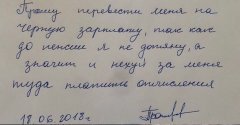 Прошу перевести меня на
черную зарплату, так как
до пенсии я не дотяну, а
значит и нехуй за меня
туда платить отчисления
18.06.2018г.